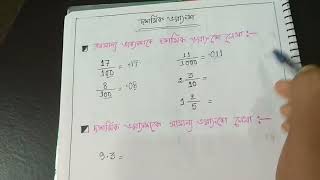 দশমিক ভগ্নাংশ
সামান্য ভগ্নাংশকে দশমিক ভগ্নাংশে লেখো :-
17/100 = .17    11/1000 = .011
8/100 = .08    2 3/10 =
1 2/5 =
দশমিক ভগ্নাংশকে সামান্য ভগ্নাংশে লেখো :-
9.3 =